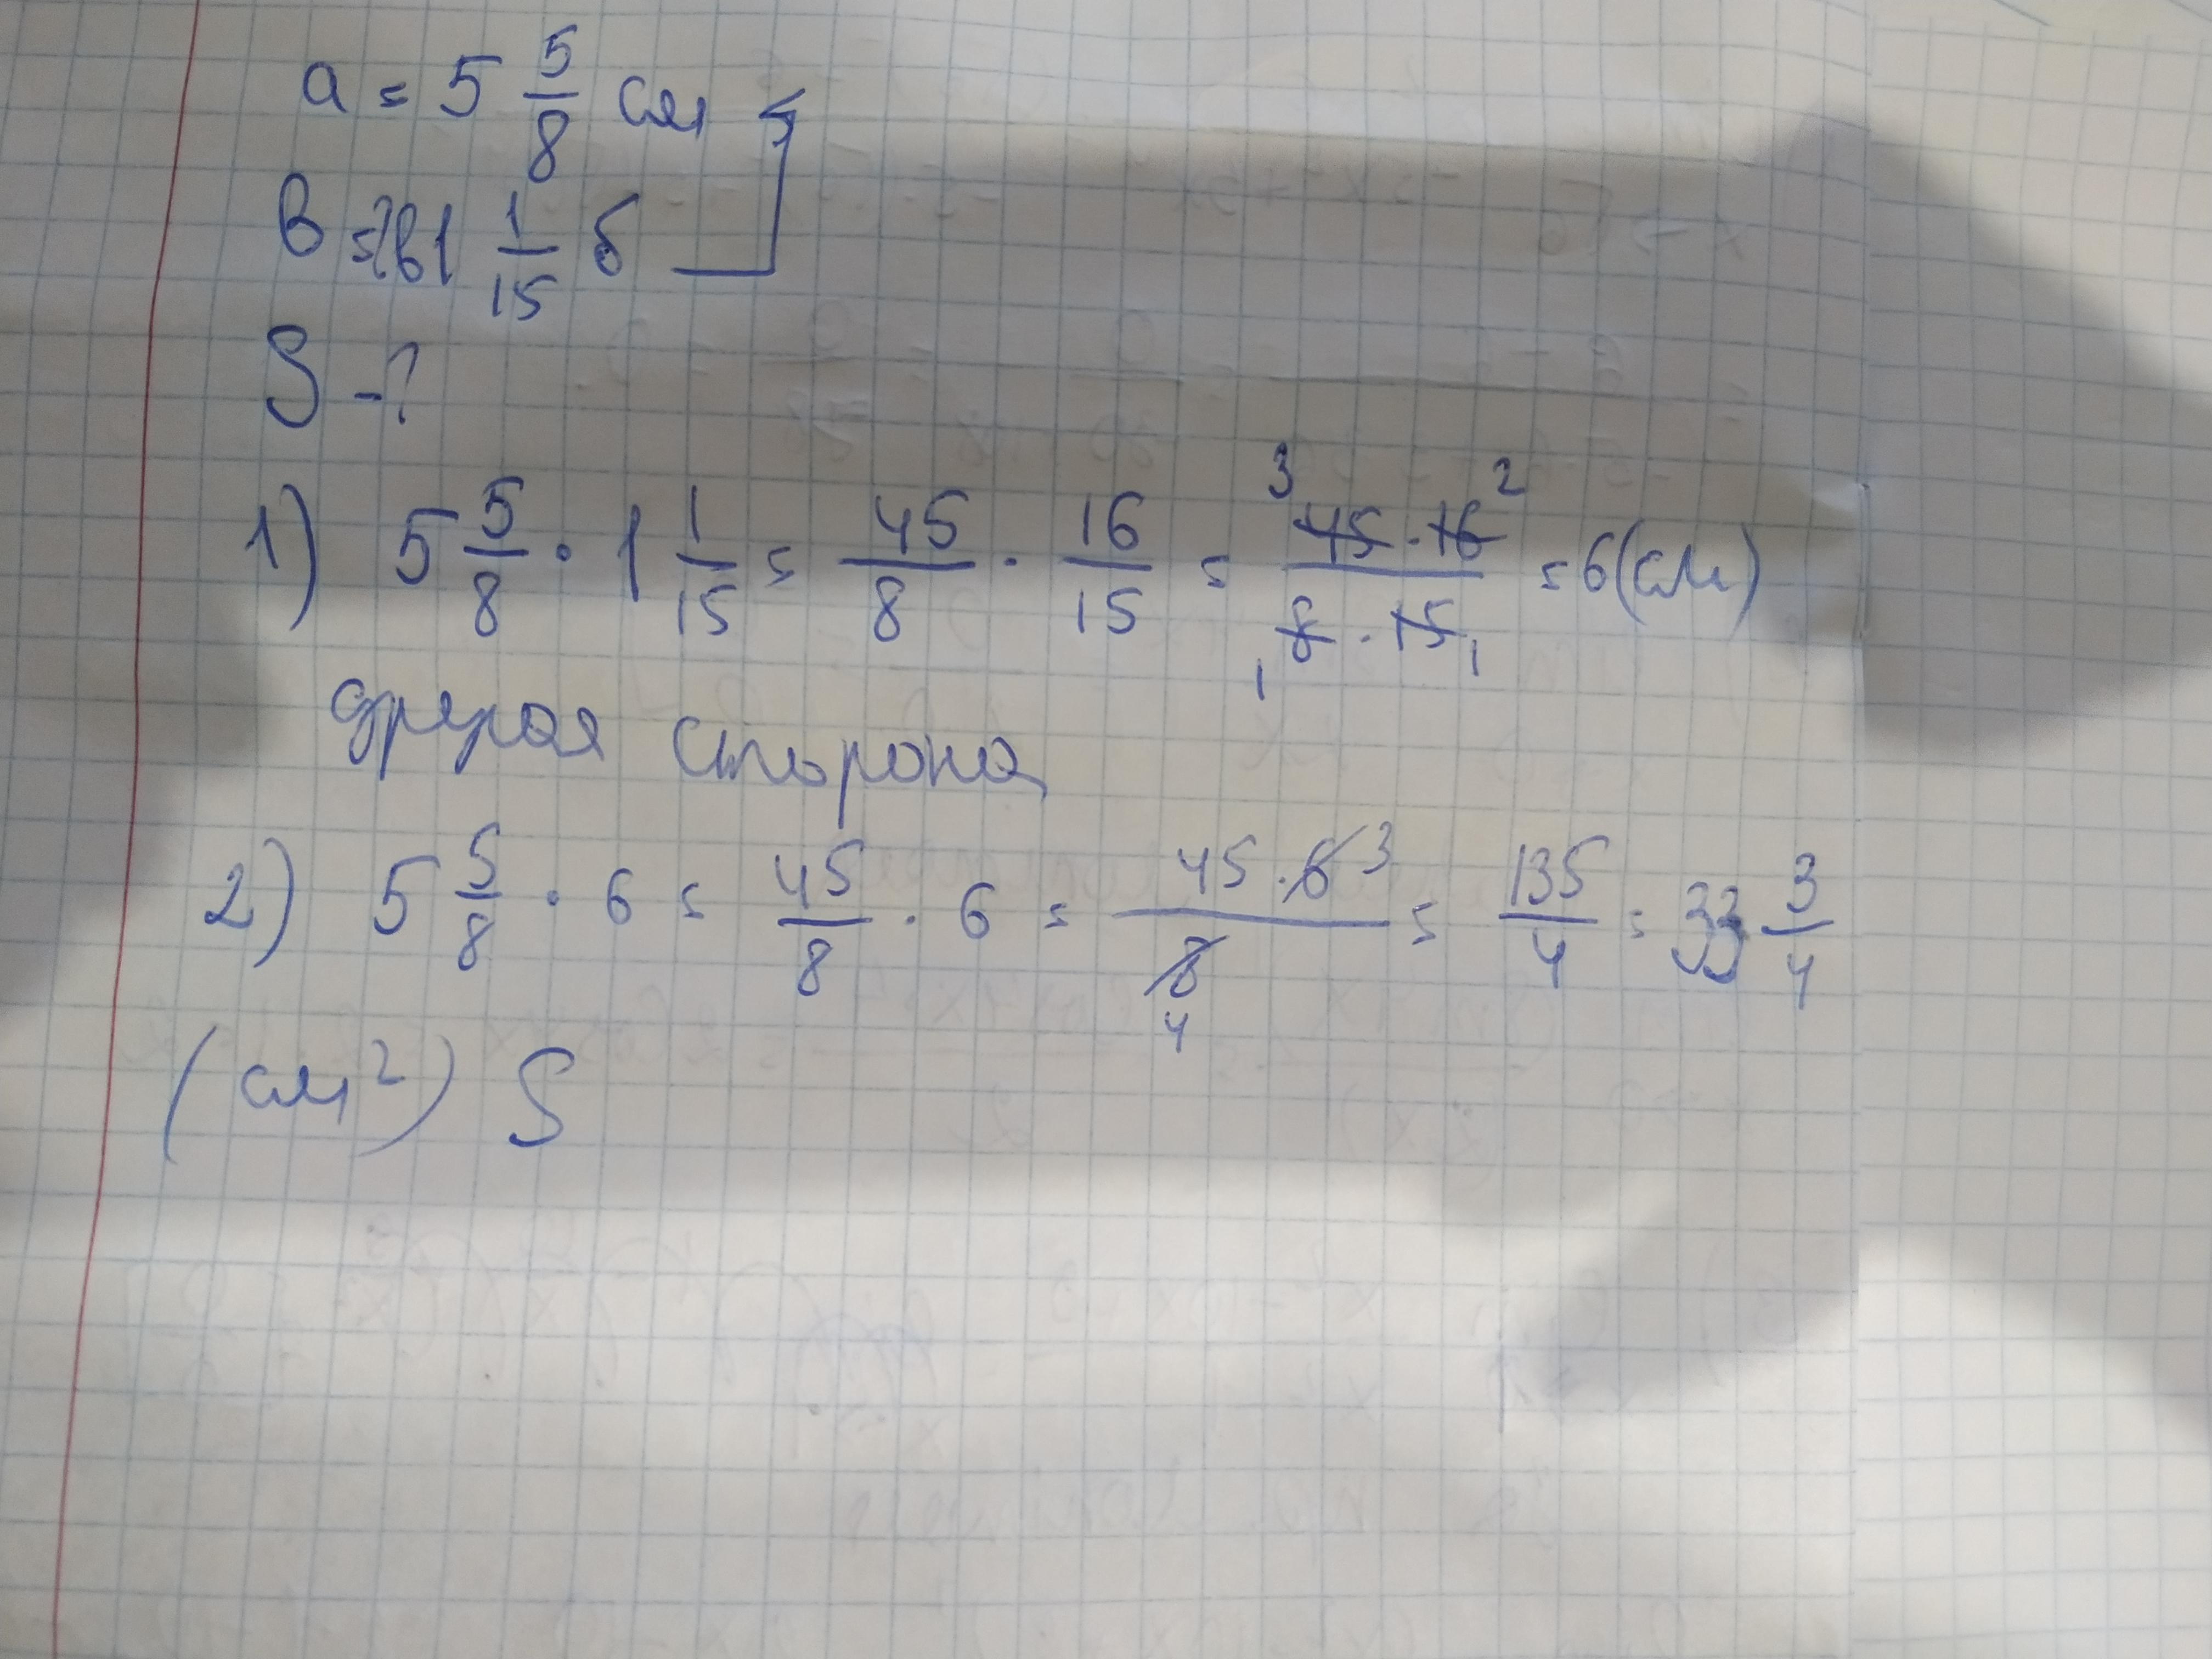 a = 5 5/8 см
в = ? в 1 1/15 б
S - ?
1) 5 5/8 · 1 1/15 = 45/8 · 16/15 = (³45 · 16²)/(₁8 · 15₁) = 6 (см)
другая сторона
2) 5 5/8 · 6 = 45/8 · 6 = (45 · 6³)/8₄ = 135/4 = 33 3/4
(см²) S